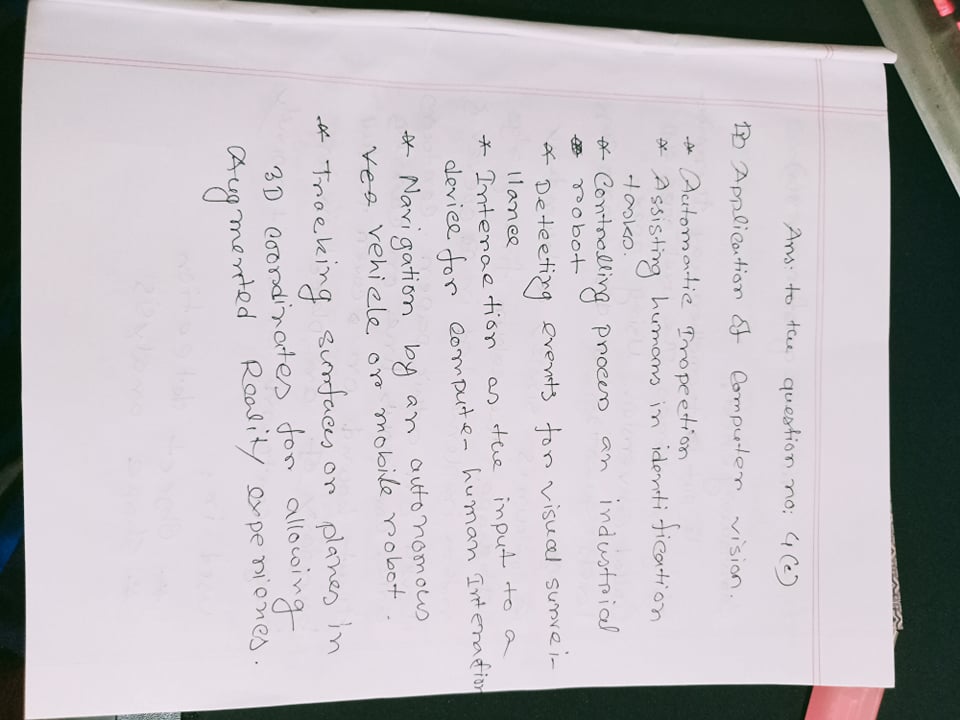 Ans: to the question no: 4(c)
Application of Computer vision.
* Automatic Inspection
* Assisting humans in identification
tasks.
* Controlling process an industrial
robot
* Detecting events for visual survei-
llance
* Interaction as the input to a
device for compute- human Interaction
* Navigation by an autonomous
vehicle or mobile robot.
* Tracking surfaces or planes in
3D coordinates for allowing
Augmented Reality experiones.